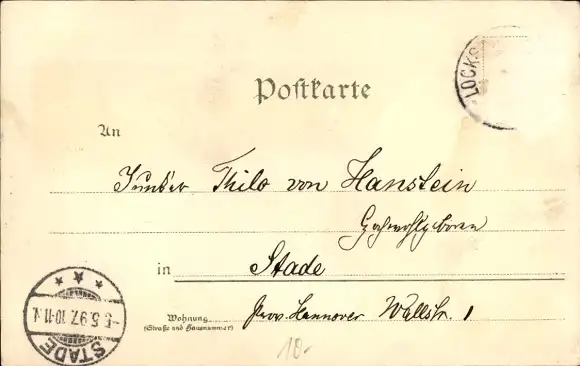 LOCKS
Postkarte
An
Junker Thilo von Hanstein
Hochwohlgeboren
in Stade
Wohnung Prov. Hannover Wallstr. 1
(Straße und Hausnummer)
STADE
5.5.97. 10-11
10.-